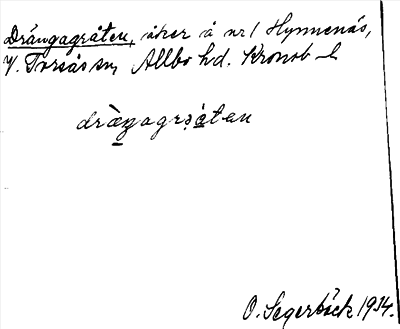 Drängagråten, åker å nr 1 Hynnenäs,
V. Torsås sn, Allbo hd. Kronob. l
dràŋagrs̩àten
O. Segerbäck 1934.